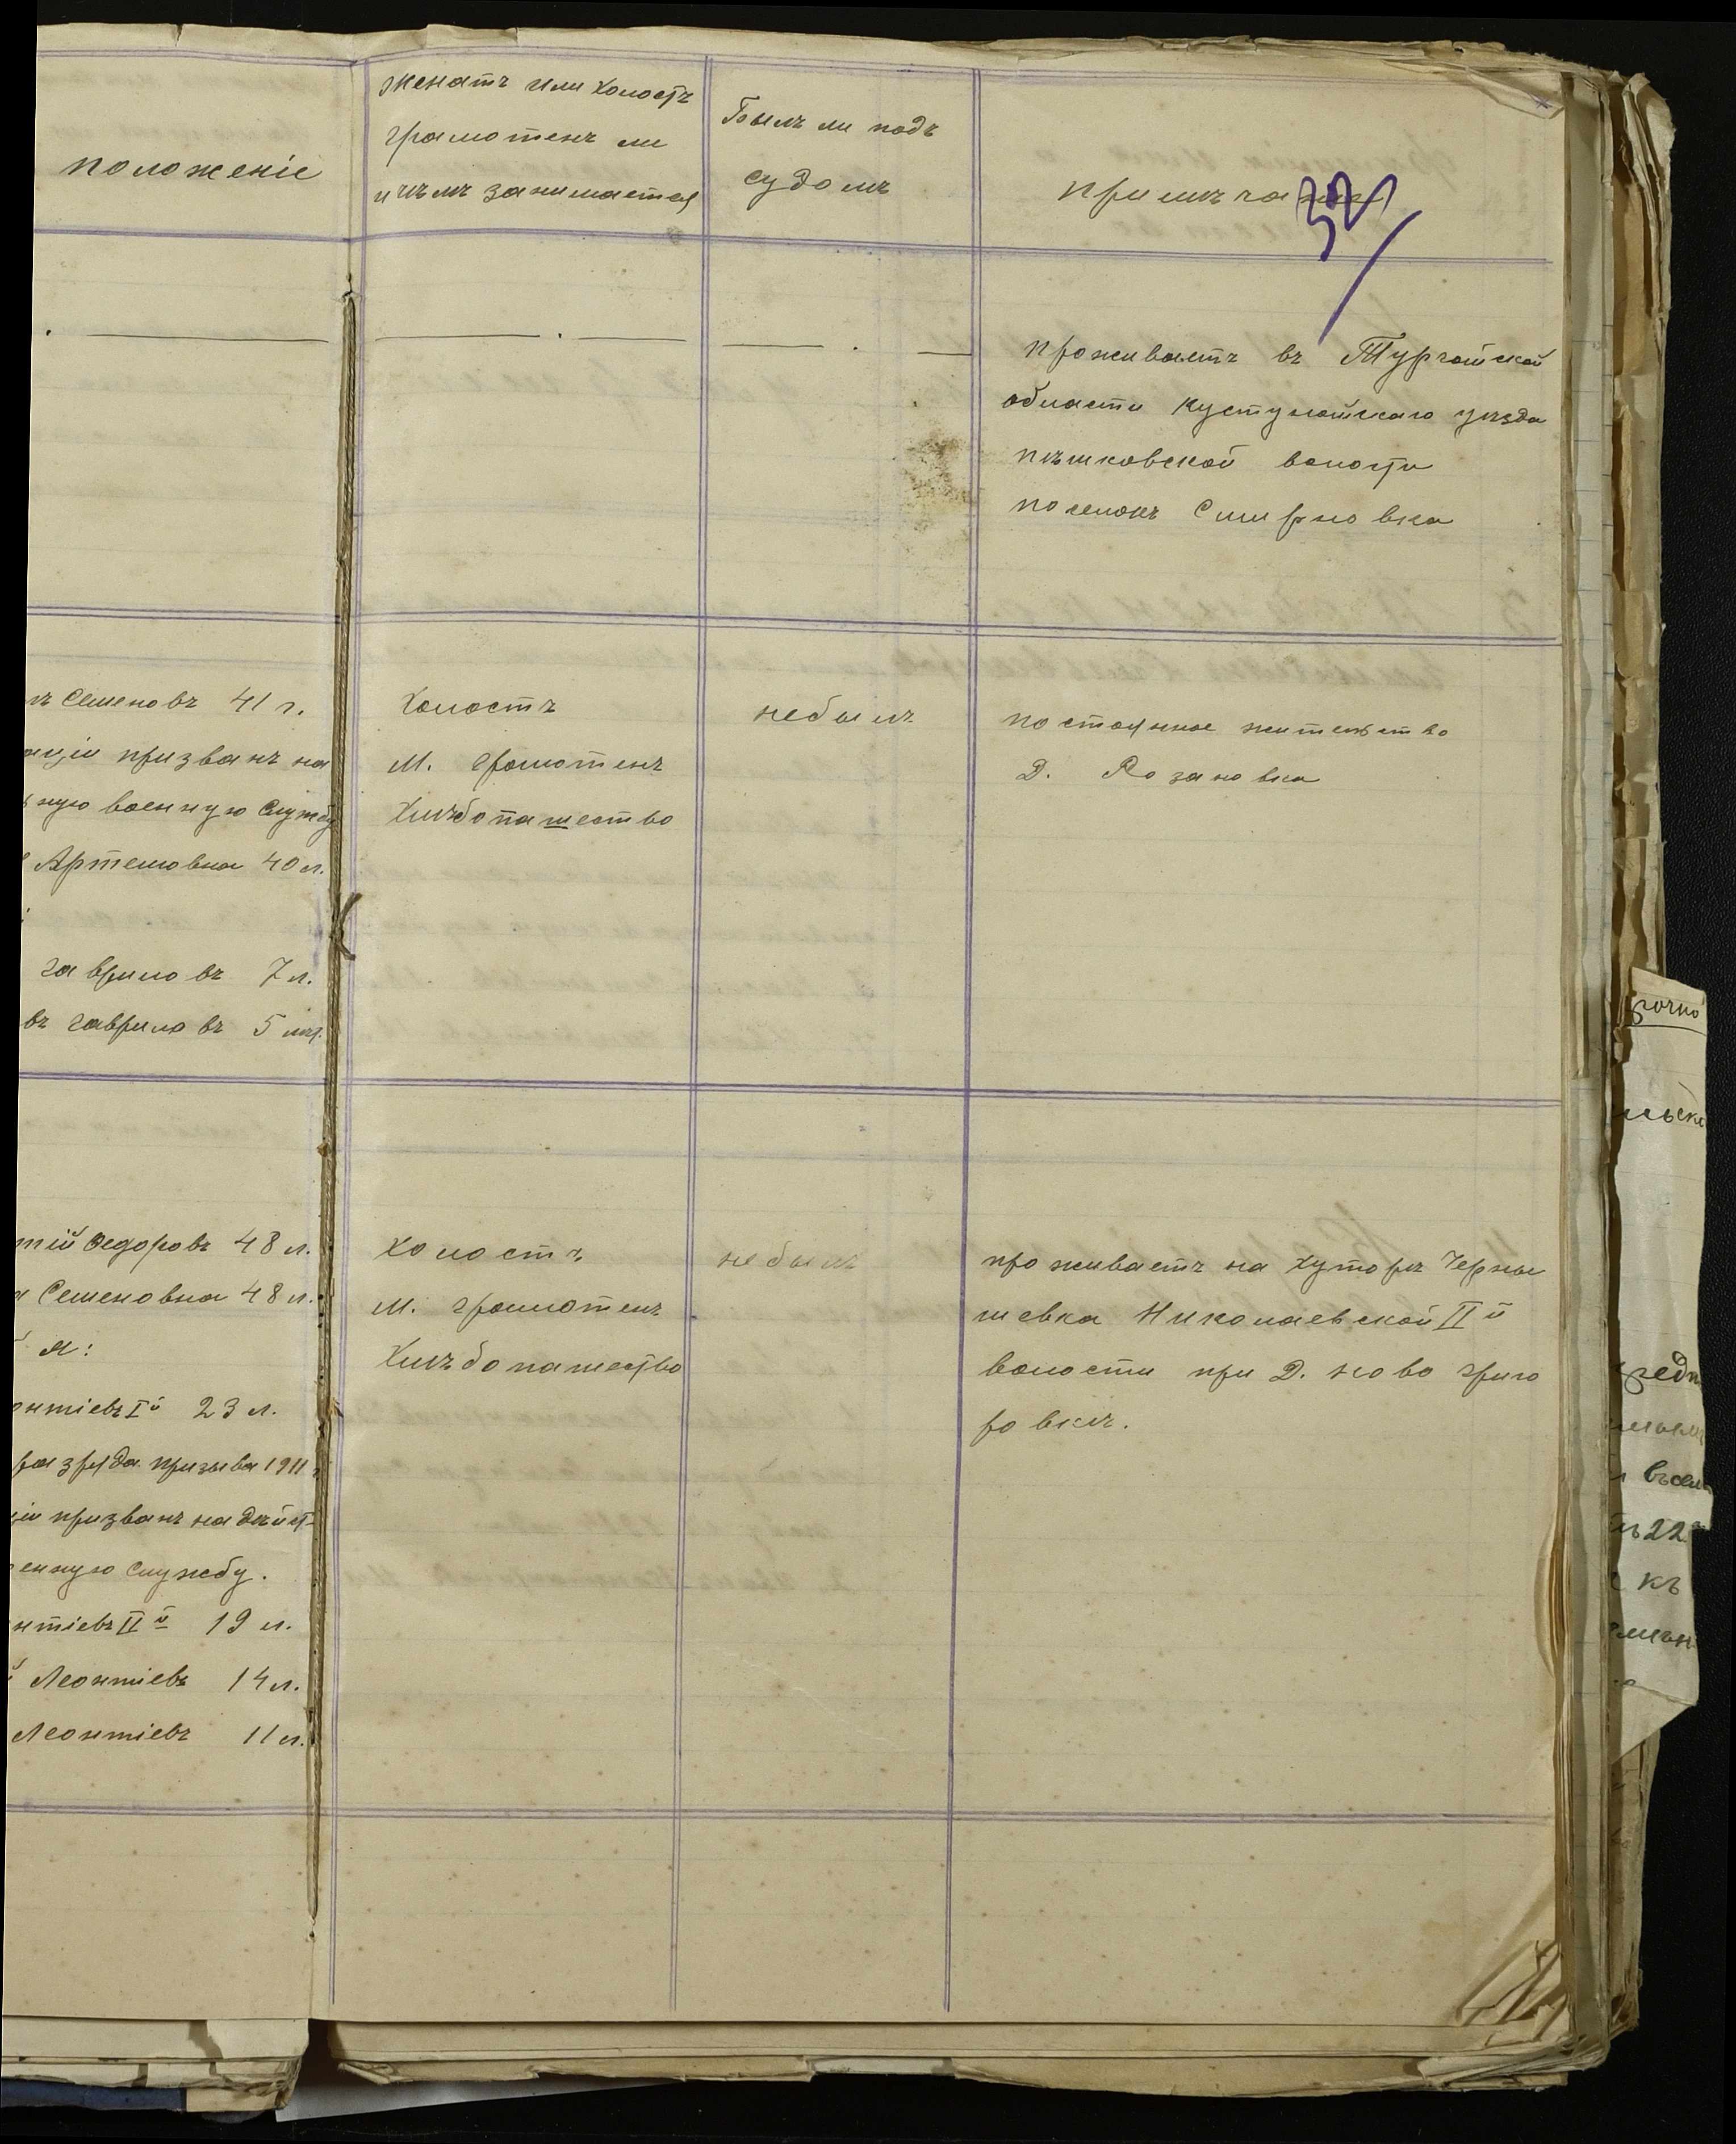 положеніе
женатъ или холостъ
грамотенъ ли
и чѣмъ занимается
Былъ ли подъ
судомъ
примѣчанія
32
проживаетъ въ Тургайской
области Кустунайскаго уѣзда
пѣшковской волости
поселокъ Смирновка
Семеновъ 41 г.
призванъ на
ную военную службу
Артемовна 40 л.
гавриловъ 7 л.
въ гавриловъ 5 лѣт.
Холостъ
М. грамотенъ
Хлѣбопашество
небылъ
постоянное жительство
Д. Розановка
тій Федоровъ 48 л.
Семеновна 48 л.
я:
онтіевъ Iй 23 л.
разряда призыва 1911 г
ціи призванъ на дѣйст-
енную службу.
нтіевъ IIй 19 л.
Леонтіевъ 14 л.
Леонтіевъ 11 л.
холостъ
М. грамотенъ
Хлѣбопашество
небылъ
проживаетъ на хуторѣ Черны
шевка Николаевской IIй
волости при Д. ново григо
ровкѣ.
рочно
льск
редн
22
къ